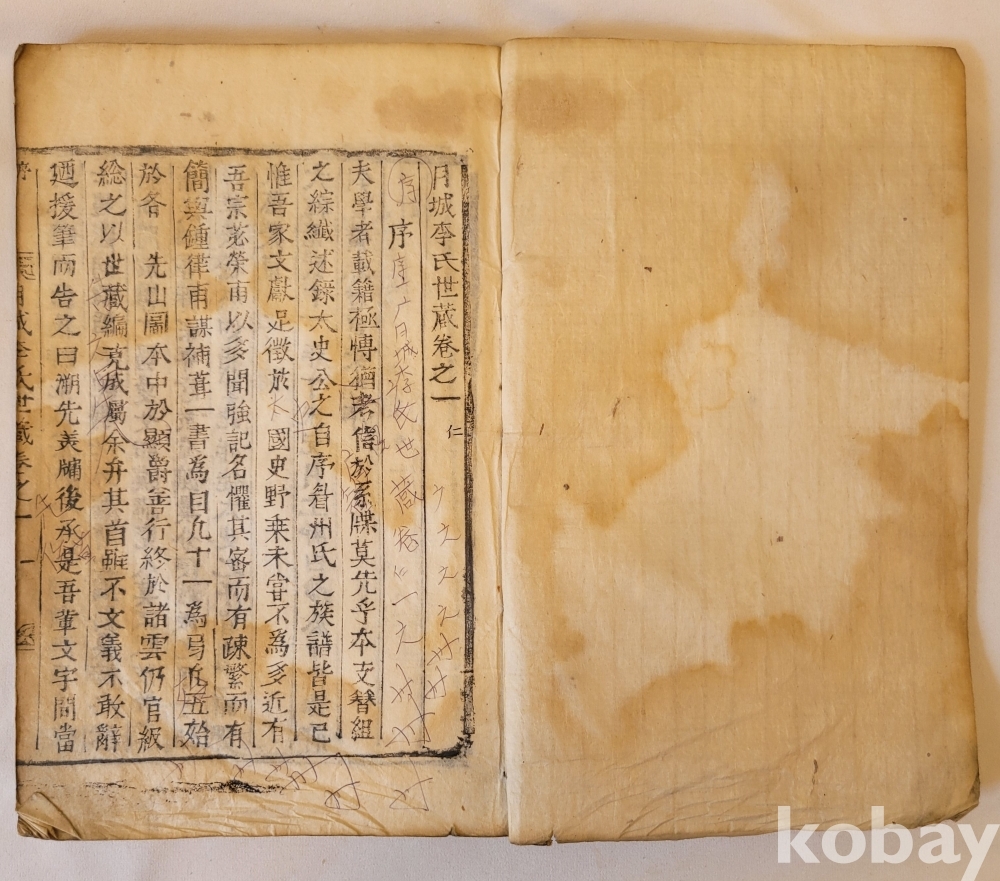 月城李氏世蔵卷之一
仁
序
夫學者載籍極愽猶考信於系牒莫先乎本支簪組
之綜纎述錄太史公之自序眉州氏之族譜皆是已
惟吾家文獻足徵於 國史野乗未甞不為多近有
吾宗苾榮甫以多聞強記名懼其宻而有疎繁而有
簡與鍾律甫謀補葺一書為目九十一為易凡五始
於各 先山圖本中於顯爵善行終於諸雲仍官級
総之以世藏編克成屬余弁其首雖不文義不敢辭
廼援筆而告之曰溯先美牖後承是吾輩文字間當
序
月城李氏世蔵卷之一
一
kobay